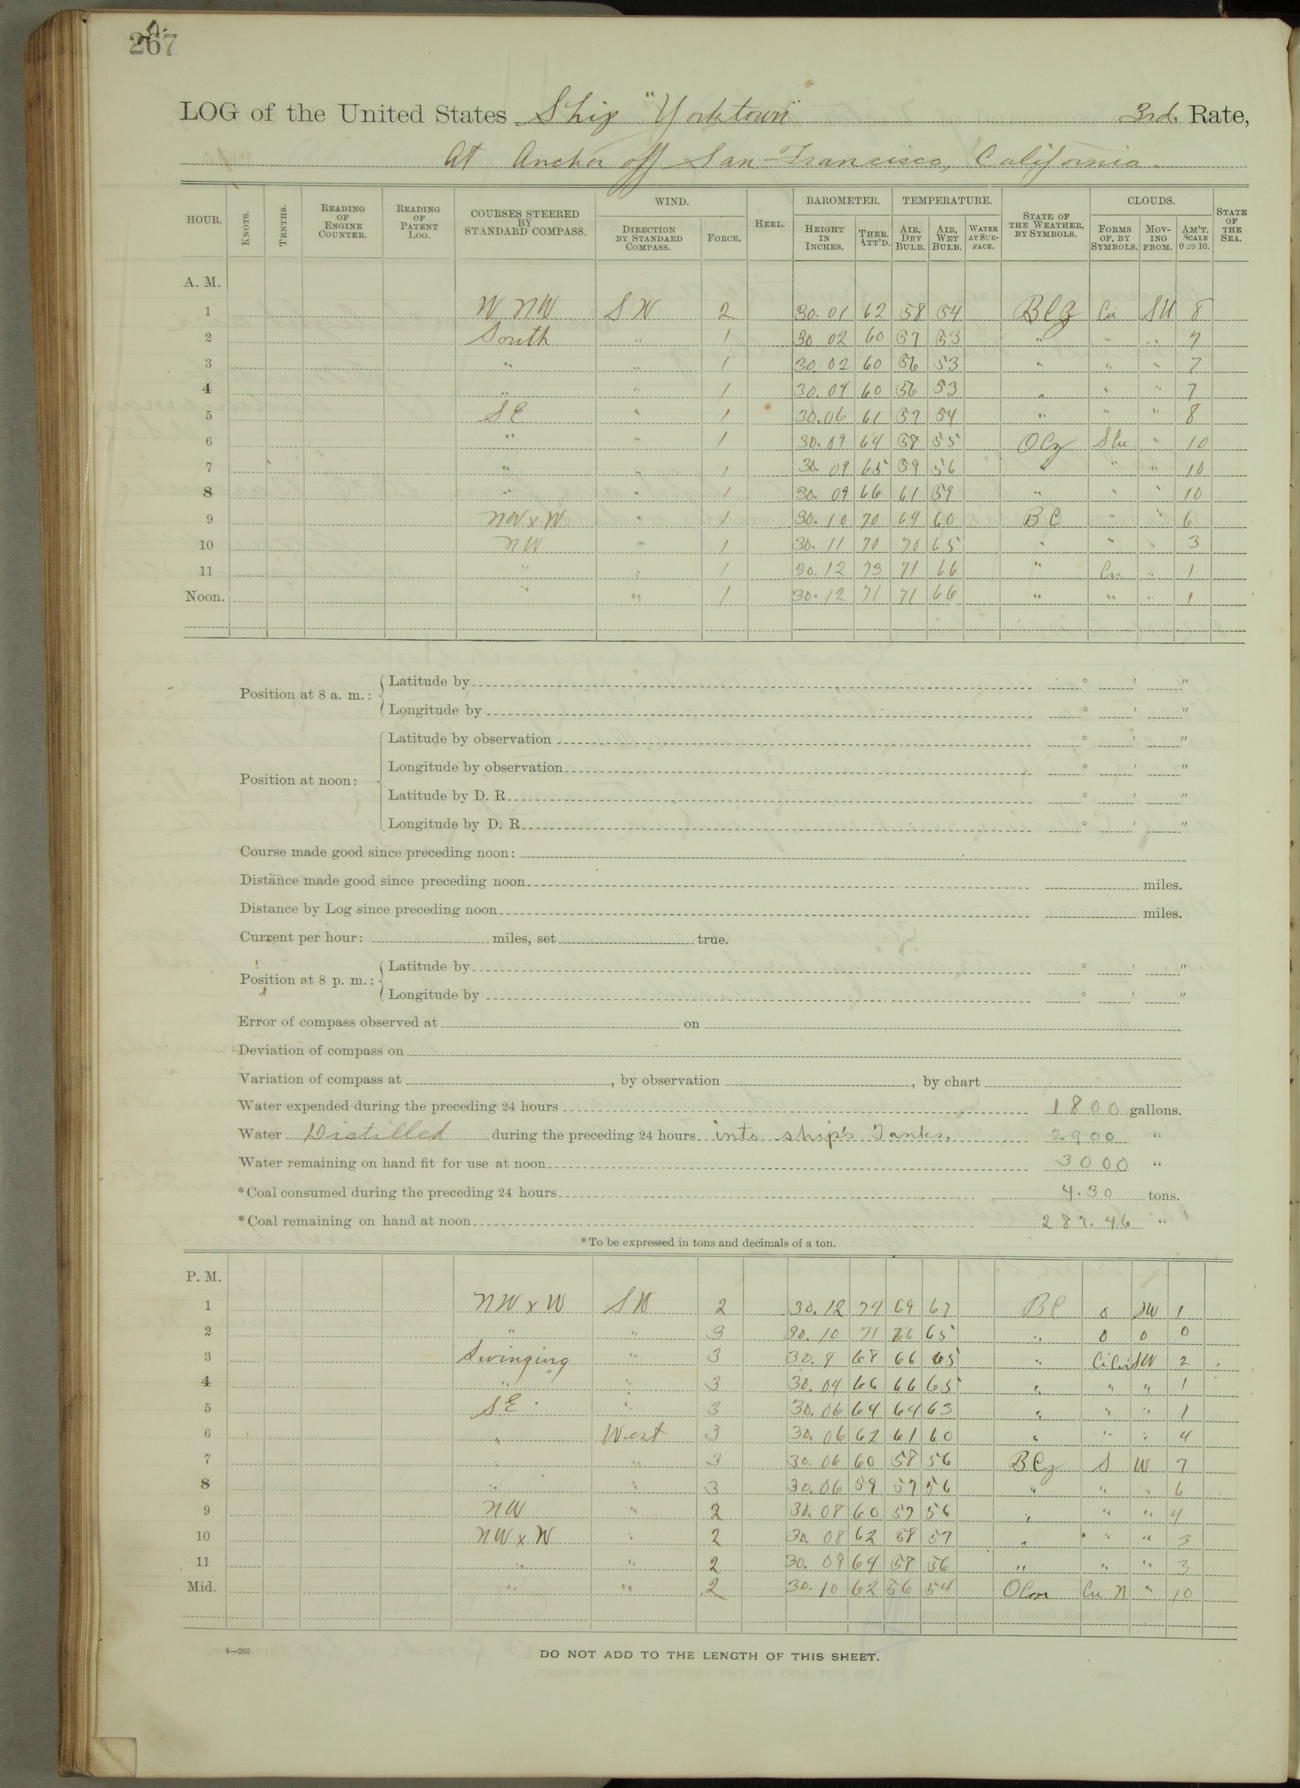 267
LOG of the United States Ship "Yorktown" 3rd. Rate,
At Anchor off San Francisco, California.
HOUR. KNOTS. TENTHS. READING OF ENGINE COUNTER. READING OF PATENT LOG. COURSES STEERED BY STANDARD COMPASS. WIND. DIRECTION BY STANDARD COMPASS. FORCE. HEEL. BAROMETER. HEIGHT IN INCHES. THER. ATT'D. TEMPERATURE. AIR, DRY BULB. AIR, WET BULB. WATER AT SURFACE. STATE OF THE WEATHER, BY SYMBOLS. CLOUDS. FORMS OF, BY SYMBOLS. MOVING FROM. AM'T. SCALE 0 TO 10. STATE OF THE SEA.
A. M.
1 WNW SW 2 30.01 62 58 54 BCZ Cu SW 8
2 South " 1 30 02 60 57 53 " " " 7
3 " " 1 30.02 60 56 53 " " " 7
4 " " 1 30.04 60 56 53 " " " 7
5 SE " 1 30.06 61 57 54 " " " 8
6 " " 1 30.09 64 58 55 OCZ SCu " 10
7 " " 1 30 09 65 59 56 " " " 10
8 " " 1 30.09 66 61 59 " " " 10
9 NW x W " 1 30.10 70 64 60 BC " " 6
10 NW " 1 30.11 70 70 65 " " " 3
11 " " 1 30.12 73 71 66 " Cu " 1
Noon. " " 1 30.12 71 71 66 " " " 1
Position at 8 a. m.: Latitude by ° ' "
Longitude by ° ' "
Position at noon: Latitude by observation ° ' "
Longitude by observation ° ' "
Latitude by D. R. ° ' "
Longitude by D. R. ° ' "
Course made good since preceding noon:
Distance made good since preceding noon miles.
Distance by Log since preceding noon miles.
Current per hour: miles, set true.
Position at 8 p. m.: Latitude by ° ' "
Longitude by ° ' "
Error of compass observed at on
Deviation of compass on
Variation of compass at , by observation , by chart
Water expended during the preceding 24 hours 1800 gallons.
Water Distilled during the preceding 24 hours into ship's Tanks. 2900 "
Water remaining on hand fit for use at noon 3000 "
*Coal consumed during the preceding 24 hours 4.30 tons.
*Coal remaining on hand at noon 287.46 "
*To be expressed in tons and decimals of a ton.
P. M.
1 NW x W SW 2 30.12 74 69 67 BC 0 SW 1
2 " " 3 30.10 71 65 " 0 0 0
3 Swinging " 3 30.9 68 66 65 " CiCu SW 2
4 " " 3 30.04 66 66 65 " " " 1
5 SE " 3 30.06 64 64 63 " " " 1
6 " West 3 30.06 62 61 60 " " " 4
7 " " 3 30.06 60 58 56 BCZ S W 7
8 " " 3 30.06 59 57 56 " " " 6
9 NW " 2 30.08 60 57 56 " " " 4
10 NW x W " 2 30.08 62 58 57 " " " 3
11 " " 2 30.09 64 58 56 " " " 3
Mid. " " 2 30.10 62 56 54 OCm Cu N " 10
4—265
DO NOT ADD TO THE LENGTH OF THIS SHEET.